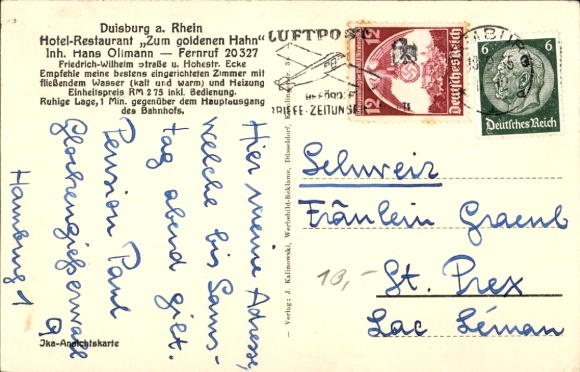 Duisburg a. Rhein
Hotel-Restaurant „Zum goldenen Hahn"
Inh. Hans Ollmann — Fernruf 20327
Friedrich-Wilhelm straße u. Hohestr. Ecke
Empfehle meine bestens eingerichteten Zimmer mit
fließendem Wasser (kalt und warm) und Heizung
Einheitspreis RM 2 75 inkl. Bedienung.
Ruhige Lage, 1 Min. gegenüber dem Hauptausgang
des Bahnhofs.
Hier meine Adresse,
welche bis Sams-
tag abend gilt.
Pension Paul
Glockengießerwall
Hamburg 1
Ika-Ansichtskarte
– Verlag: J. Kalinowski, Werbebild-Reklame, Düsseldorf,
LUFTPOST
BRIEFE-ZEITUNGEN
12
12
Deutsches Reich
6
6
Deutsches Reich
Schweiz
Fräulein Graenb
18,-
St. Prex
Lac Léman